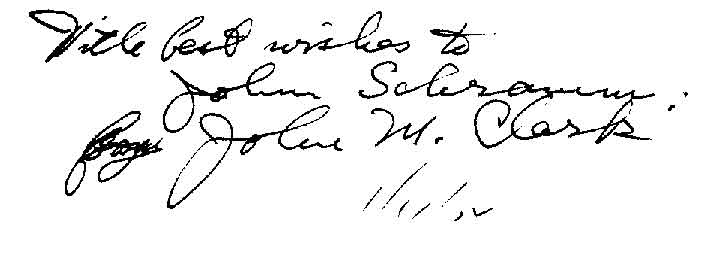 With best wishes to
John Schramm.
from John M. Clark